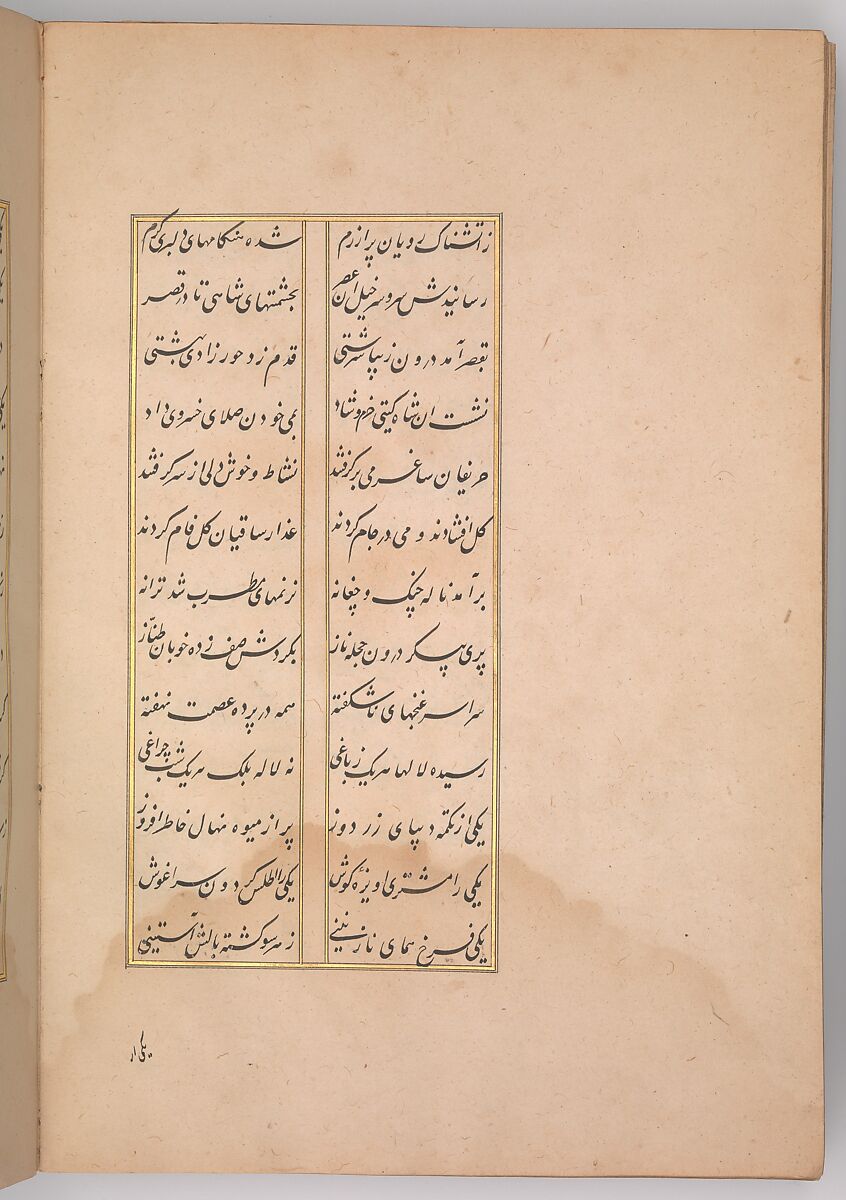 ز آتشناک رویان پر آزرم شده هنگامهای دلبری گرم
رسانیدش سر و سرخیل آن عصر بحشمتهای شاهی تا در قصر
بقصر آمد درون زیبا سرشتی قدم زد حورزادی در بهشتی
نشست آن شاه گیتی خرم و شاد بمی خوردن صلای خسروی داد
حریفان ساغر می بر گرفتند نشاط و خوش دلی از سر گرفتند
گل افشاندند و می در جام کردند عذار ساقیان گل فام کردند
بر آمد ناله چنگ و چغانه ترنمهای مطرب شد ترانه
پری پیکر درون حجله ناز بگردش صف زده خوبان طناز
سراسر غنچهای ناشکفته همه در پرده عصمت نهفته
رسیده لالها هر یک ز باغی نه لاله بلک هر یک شب چراغی
یکی از تکمه دیبای زر دوز پر از میوه نهال خاطر افروز
یکی را مشتری آویزه گوش یکی را اطلس گردون سراغوش
یکی فرخ همای نازنینی ز هر سو گشته بالش آستینی
یکی از